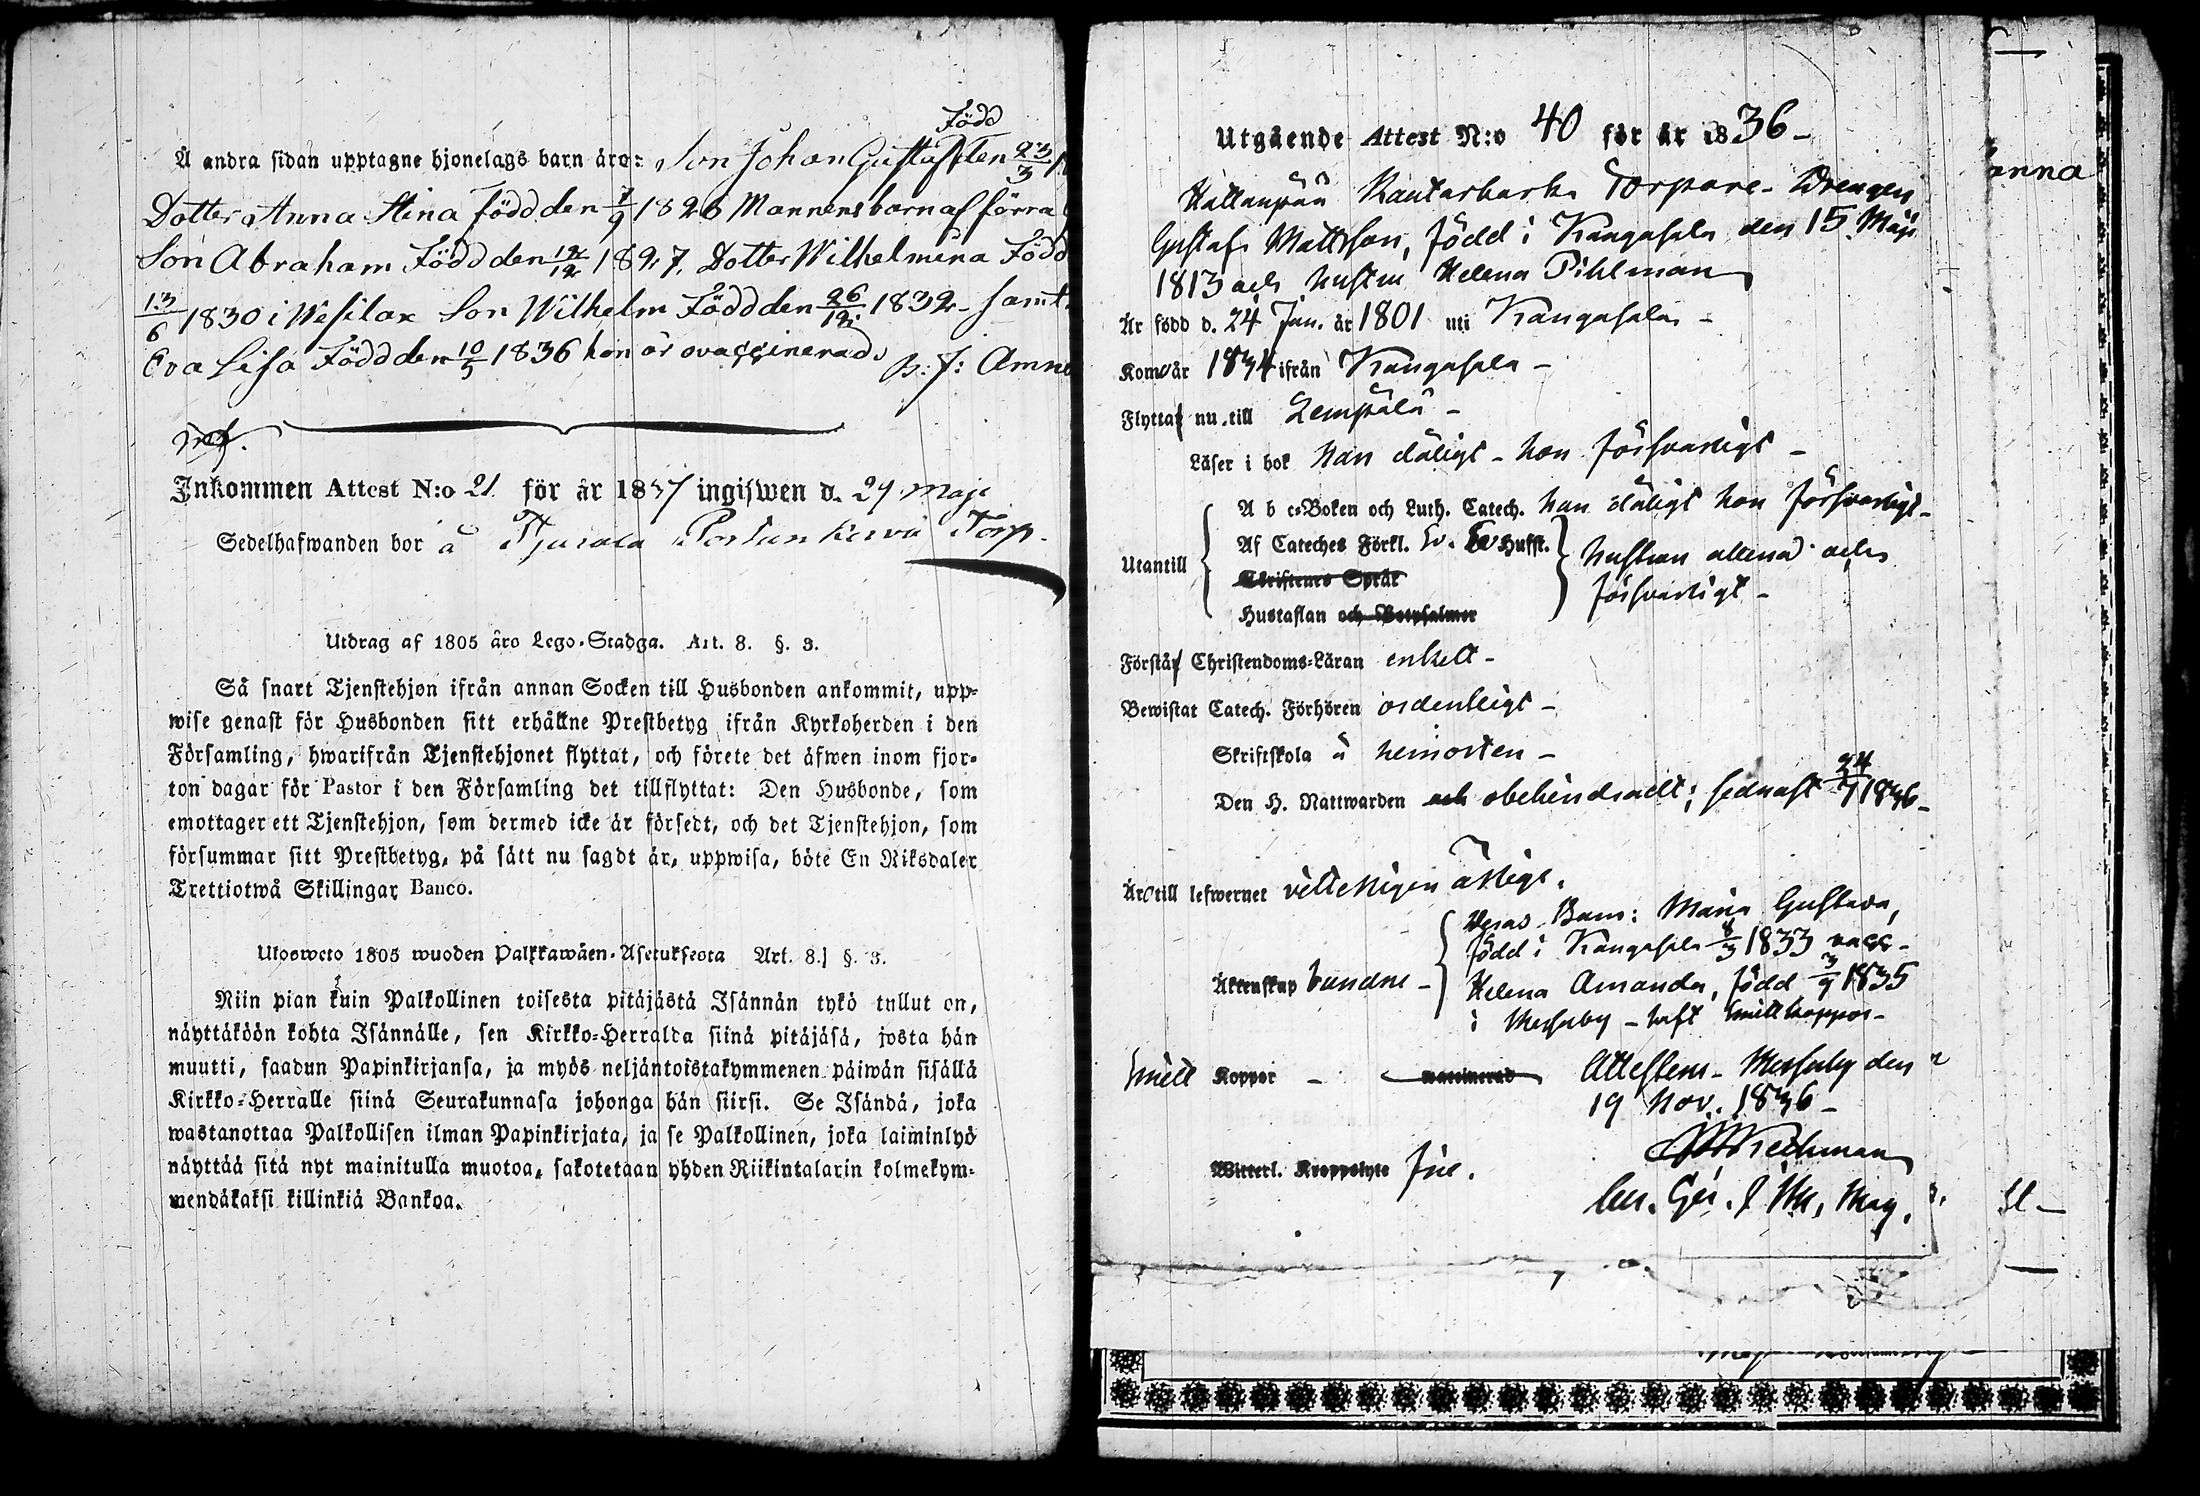 Å andra sidan upptagne hjonelags barn äro: Son Johan Gustaf Född den 23/3
Dotter Anna Stina Född den 7/9 1826 Mannens barn af förra
Son Abraham Född den 12/12 1827. Dotter Wilhelmina Född
13/6 1830 i Wesilax Son Wilhelm Född den 26/12 1832 - samt
Eva Lisa Född den 10/5 1836 hon är ovaccinerad.
Inkommen Attest N:o 21 för år 1837 ingifwen d. 29 Maji
Sedelhafwanden bor å Torp.
Utdrag af 1805 års Lego-Stadga. Art. 8. §. 3.
Så snart Tjenstehjon ifrån annan Socken till Husbonden ankommit, upp-
wise genast för Husbonden sitt erhållne Prestbetyg ifrån Kyrkoherden i den
Församling, hwarifrån Tjenstehjonet flyttat, och förete det äfwen inom fjor-
ton dagar för Pastor i den Församling det tillflyttat: Den Husbonde, som
emottager ett Tjenstehjon, som dermed icke är försedt, och det Tjenstehjon, som
försummar sitt Prestbetyg, på sätt nu sagdt är, uppwisa, böte En Riksdaler
Trettiotwå Skillingar Banco.
Ulosweto 1805 wuoden Palkkawäen-Asetuksesta Art. 8. §. 3.
Niin pian kuin Palkollinen toisesta pitäjästä Isännän tykö tullut on,
näyttäköön kohta Isännälle, sen Kirkko-Herralda siinä pitäjäsä, josta hän
muutti, saadun Papinkirjansa, ja myös neljäntoistakymmenen päiwän sisällä
Kirkko-Herralle siinä Seurakunnasa johonga hän siirsi. Se Isändä, joka
wastanottaa Palkollisen ilman Papinkirjata, ja se Palkollinen, joka laiminlyö
näyttää sitä nyt mainitulla muotoa, sakotetaan yhden Riikintalarin kolmekym-
mendäkaksi killinkiä Bankoa.
Utgående Attest N:o 40 för år 1836 -
Hallanpää Kautarbacka Torpare Drengen
Gustaf Mattsson, född i Kangasala den 15 Maji
1813 och hustru Helena Pihlman
Är född d. 24 Jan. år 1801 uti Kangasala -
Kom år 1834 ifrån Kangasala -
Flytta nu till Lempälä -
Läser i bok han dåligt - hon försvarligt -
Utantill A b c-Boken och Luth. Catech. han dåligt hon försvarligt -
Af Cateches Förkl. Sv. Hufst. hustrun allena och
Christenes Språk försvarligt -
Hustaflan och Botpsalmer
Förstå Christendoms-Läran enkelt -
Bewistat Catech. Förhören ordentligt -
Skriftskola å hemorten -
Den H. Nattwarden och obehindradt; sednast 24/7 1836 -
Äro till lefwernet ärligt.
Deras Barn: Maria Gustava,
född i Kangasala 8/3 1833 vacc -
Äktenskap bundne - Helena Amanda, född 3/9 1835
i Messuby - haft småkoppor -
Koppor - vaccinerad Attestera - Messuby den
19 Nov. 1836 -
Witterl. Kroppslyte
anna